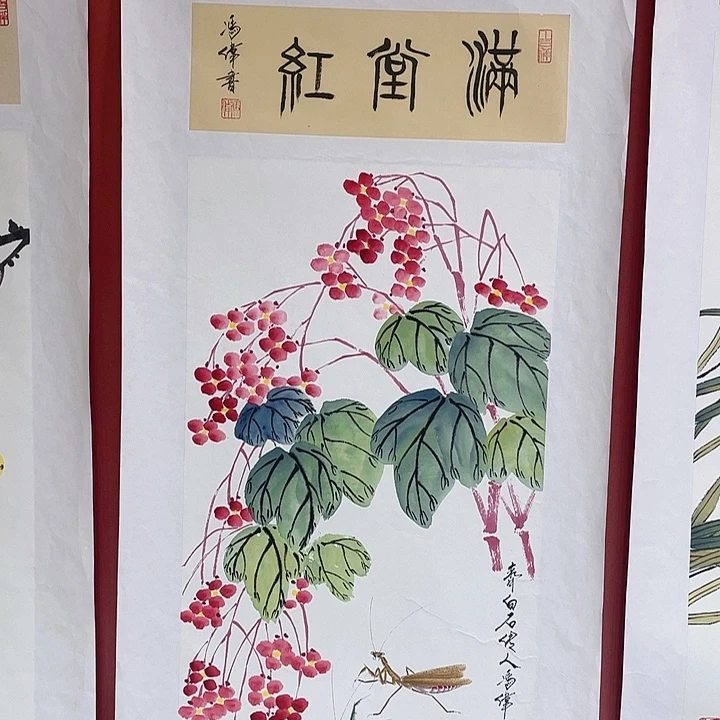 滿堂紅
馮偉書
齊白石傳人馮偉